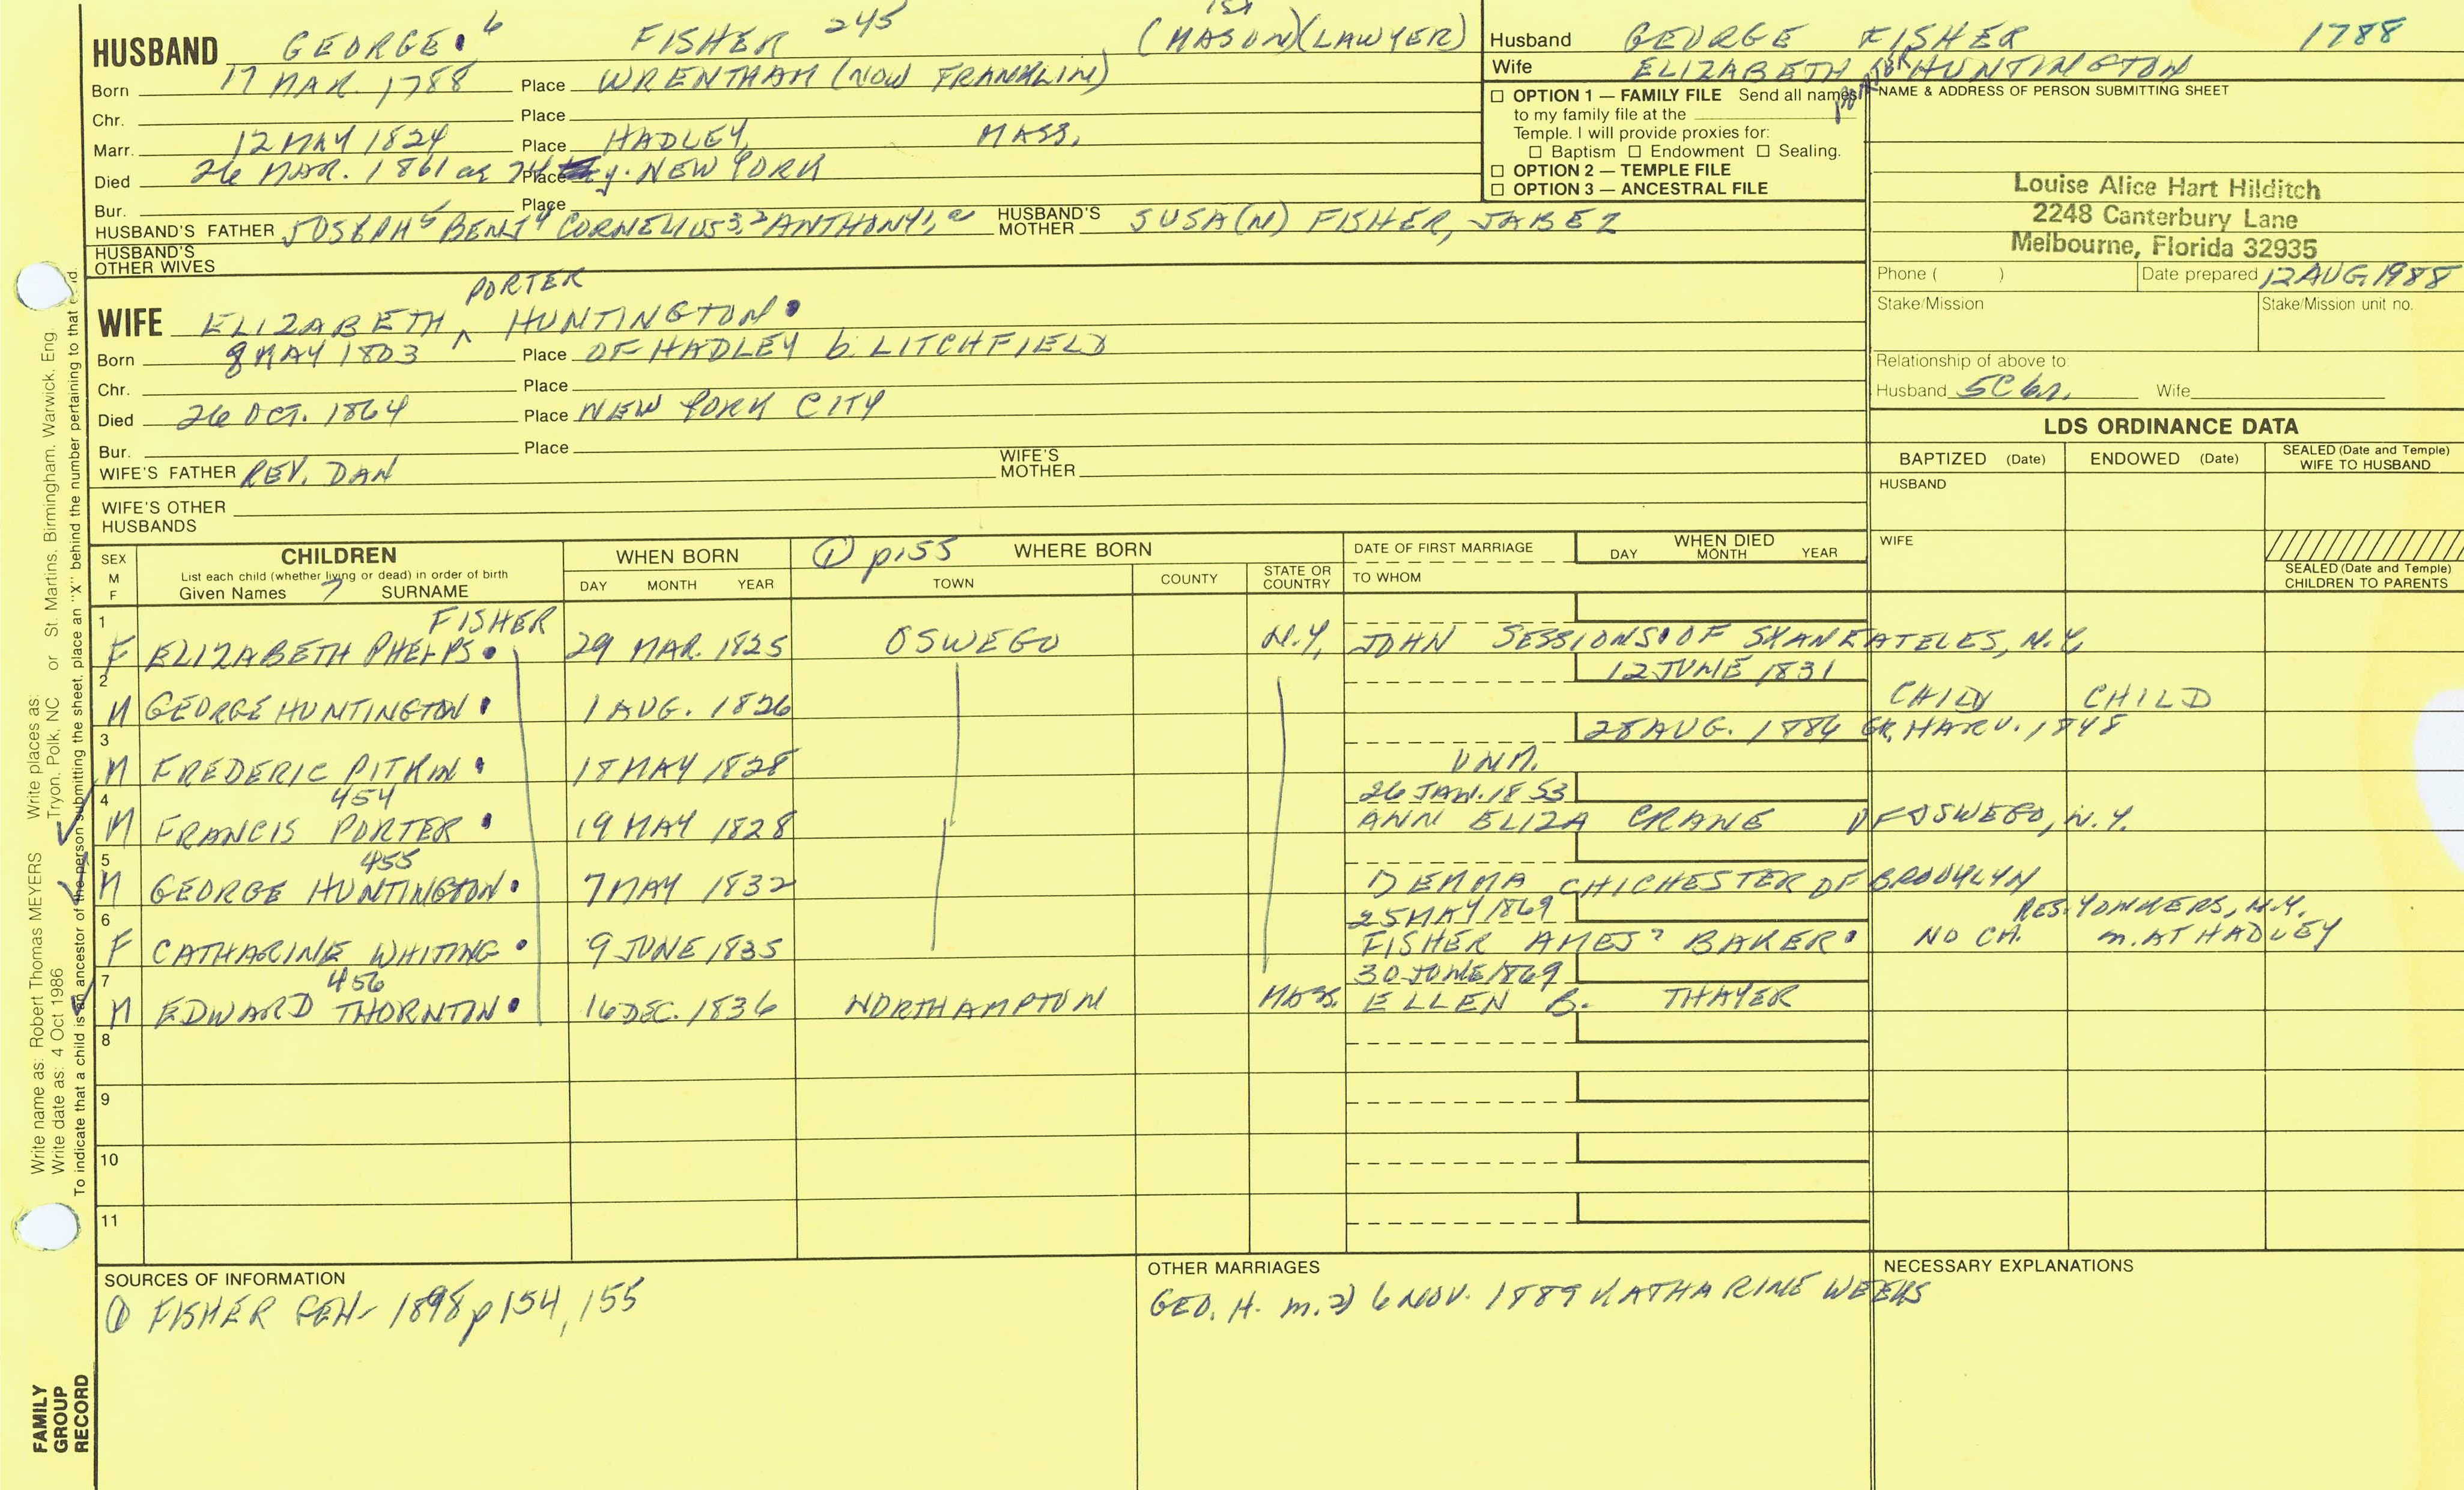 1st
HUSBAND GEORGE 6 FISHER 245 (MASON)(LAWYER)
Born 17 MAR. 1788 Place WRENTHAM (NOW FRANKLIN)
Chr. Place
Marr. 12 MAY 1824 Place HADLEY, MASS,
Died 26 MAR. 1861 Place y. NEW YORK
Bur. Place
HUSBAND'S FATHER JOSEPH 5 BENJ 4 CORNELIUS 3, 2 ANTHONY 1, 2 HUSBAND'S MOTHER SUSA(N) FISHER, JABEZ
HUSBAND'S OTHER WIVES
PORTER
WIFE ELIZABETH ^ HUNTINGTON
Born 8 MAY 1803 Place OF HADLEY b. LITCHFIELD
Chr. Place
Died 26 OCT. 1864 Place NEW YORK CITY
Bur. Place
WIFE'S FATHER REV. DAN WIFE'S MOTHER
WIFE'S OTHER HUSBANDS
Husband GEORGE FISHER 1788
Wife ELIZABETH PORTER HUNTINGTON
☐ OPTION 1 — FAMILY FILE Send all names
to my family file at the
Temple. I will provide proxies for:
☐ Baptism ☐ Endowment ☐ Sealing.
☐ OPTION 2 — TEMPLE FILE
☐ OPTION 3 — ANCESTRAL FILE
NAME & ADDRESS OF PERSON SUBMITTING SHEET
Louise Alice Hart Hilditch
2248 Canterbury Lane
Melbourne, Florida 32935
Phone ( ) Date prepared 12 AUG. 1988
Stake/Mission Stake/Mission unit no.
Relationship of above to:
Husband 5C 6r. Wife
LDS ORDINANCE DATA
BAPTIZED (Date) ENDOWED (Date) SEALED (Date and Temple) WIFE TO HUSBAND
HUSBAND
WIFE
SEALED (Date and Temple) CHILDREN TO PARENTS
SEX M F
CHILDREN
List each child (whether living or dead) in order of birth
Given Names 7 SURNAME
WHEN BORN
DAY MONTH YEAR
① p.155 WHERE BORN
TOWN COUNTY STATE OR COUNTRY
DATE OF FIRST MARRIAGE
TO WHOM
WHEN DIED
DAY MONTH YEAR
1 FISHER
F ELIZABETH PHELPS 29 MAR. 1825 OSWEGO N.Y. JOHN SESSIONS OF SKANEATELES, N.Y.
2 12 JUNE 1831
M GEORGE HUNTINGTON 1 AUG. 1826 CHILD CHILD
3 28 AUG. 1886 GR. HARV. 1848
M FREDERIC PITKIN 18 MAY 1828 UNM.
4 454 26 JAN. 1853
M FRANCIS PORTER 19 MAY 1828 ANN ELIZA CRANE OF OSWEGO, N.Y.
5 455
M GEORGE HUNTINGTON 7 MAY 1832 1) EMMA CHICHESTER OF BROOKLYN
6 25 MAY 1869 RES. YONKERS, N.Y.
F CATHARINE WHITING 9 JUNE 1835 FISHER AMES 7 BAKER NO CH. m. AT HADLEY
7 456 30 JUNE 1869
M EDWARD THORNTON 16 DEC. 1836 NORTHAMPTON MASS. ELLEN B. THAYER
8
9
10
11
SOURCES OF INFORMATION
① FISHER GEN- 1898 p 154, 155
OTHER MARRIAGES
GEO. H. m. 2) 6 NOV. 1889 KATHARINE WEEKS
NECESSARY EXPLANATIONS
Write name as: Robert Thomas MEYERS Write places as:
Write date as: 4 Oct 1986 Tryon, Polk, NC or St. Martins, Birmingham, Warwick, Eng
To indicate that a child is an ancestor of the person submitting the sheet, place an "X" behind the number pertaining to that
FAMILY
GROUP
RECORD